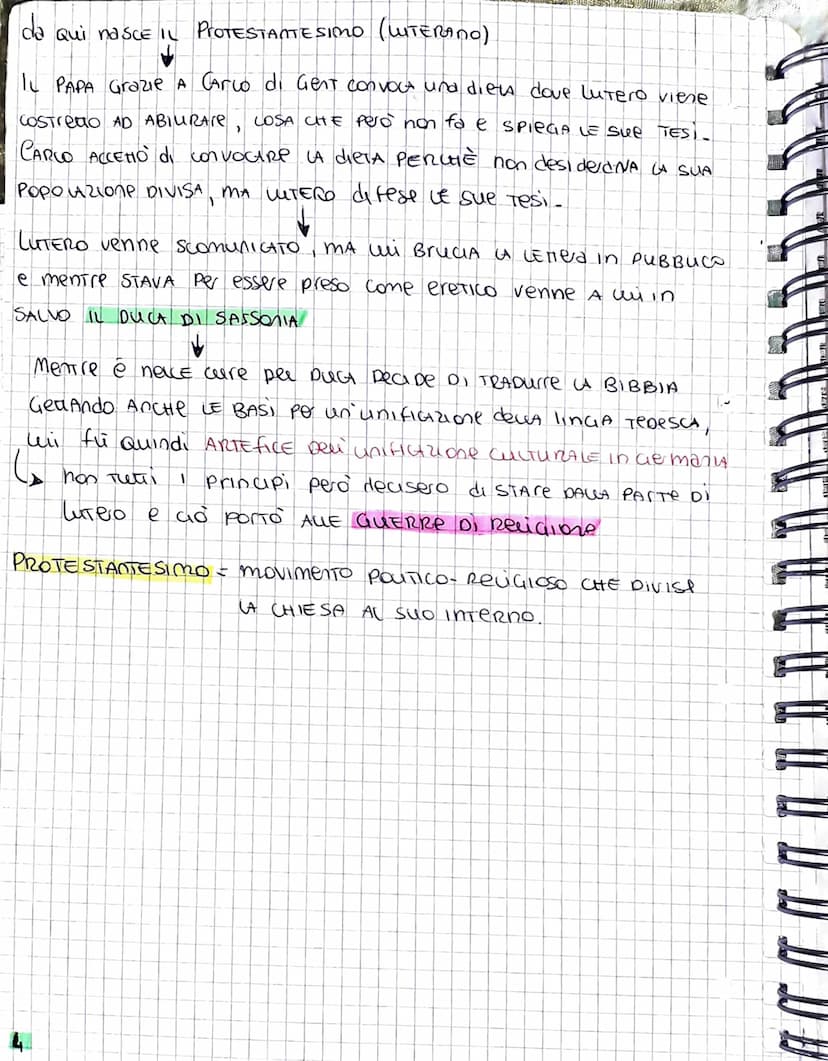 da qui nasce il PROTESTANTESIMO (LUTERANO)
IL PAPA Grazie A Carlo di Gent convoca una dieta dove Lutero viene
costretto AD ABIURARE, COSA CHE però non fa e SPIEGA LE SUE TESI.
CARLO ACCETTÒ di CONVOCARE LA DIETA PERCHÈ non desiderava LA SUA
POPOLAZIONE DIVISA, MA LUTERO difese LE SUE TESI.
LUTERO venne SCOMUNICATO, MA lui BRUCIA LA LETTERA in PUBBLICO
e mentre STAVA Per essere preso come eretico venne A lui in
SALVO IL DUCA DI SASSONIA
Mentre è nelle cure del DUCA DECIDE DI TRADURRE LA BIBBIA
GETTANDO ANCHE LE BASI per un'unificazione della lingua TEDESCA,
lui fù quindi ARTEFICE Dell'unificazione CULTURALE in Germania
non TUTTI i principi però decisero di STARE DALLA PARTE DI
Lutero e ciò PORTÒ ALLE GUERRE DI Religione
PROTESTANTESIMO = MOVIMENTO POLITICO-RELIGIOSO CHE DIVISE
LA CHIESA AL SUO INTERNO.
4